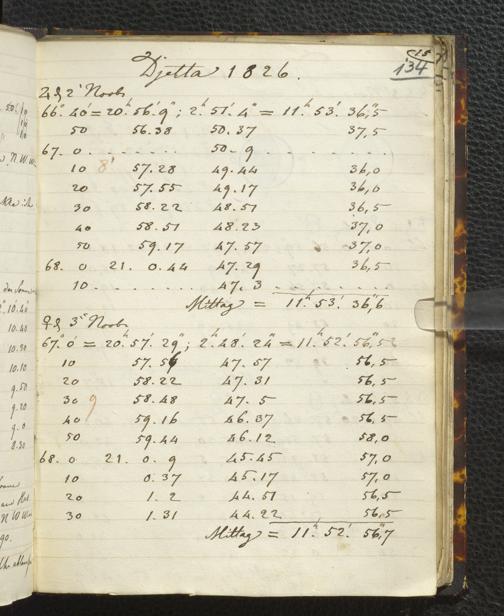 Djetta 1826.
134
♃ d 2' Novbr
66° 40' = 20h. 56'. 9"; 2h. 51'. 4" = 11h. 53'. 36",5
50 56.38 50.37 37,5
67. 0 . . . . . . . . 50. 9 . . . . . . . .
10 8' 57.28 49.44 36,0
20 57.55 49.17 36,0
30 58.22 48.51 36,5
40 58.51 48.23 37,0
50 59.17 47.57 37,0
68. 0 21. 0.44 47.29 36,5
10 . . . . . . . . 47. 3 . . . . . . . .
Mittag = 11h. 53'. 36",6
♀ d 3' Novbr
67° 0' = 20h. 57'. 29"; 2h. 48'. 24" = 11h. 52'. 56",5
10 57.56 47.57 56,5
20 58.22 47.31 56,5
30 9 58.48 47.5 56,5
40 59.16 46.37 56,5
50 59.44 46.12 58,0
68. 0 21. 0.9 45.45 57,0
10 0.37 45.17 57,0
20 1.2 44.51 56,5
30 1.31 44.22 56,5
Mittag = 11h. 52'. 56",7
10.40
10.30
10.10
9.50
9.20
9.0
8.30